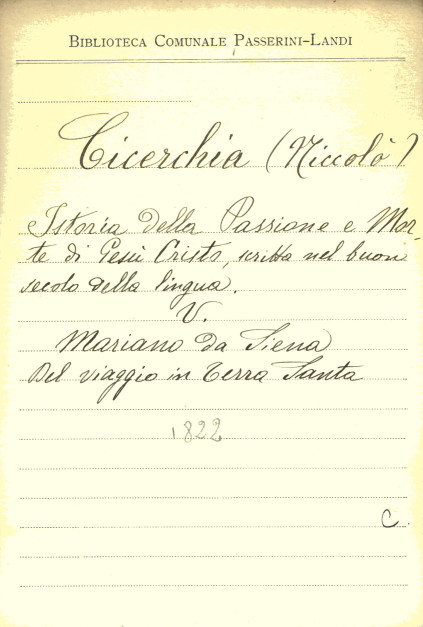 BIBLIOTECA COMUNALE PASSERINI-LANDI
Cicerchia (Niccolò)
Istoria della Passione e Mor-
te di Gesù Cristo, scritta nel buon
secolo della lingua.
V.
Mariano da Siena
Del viaggio in Terra Santa
1822
C.